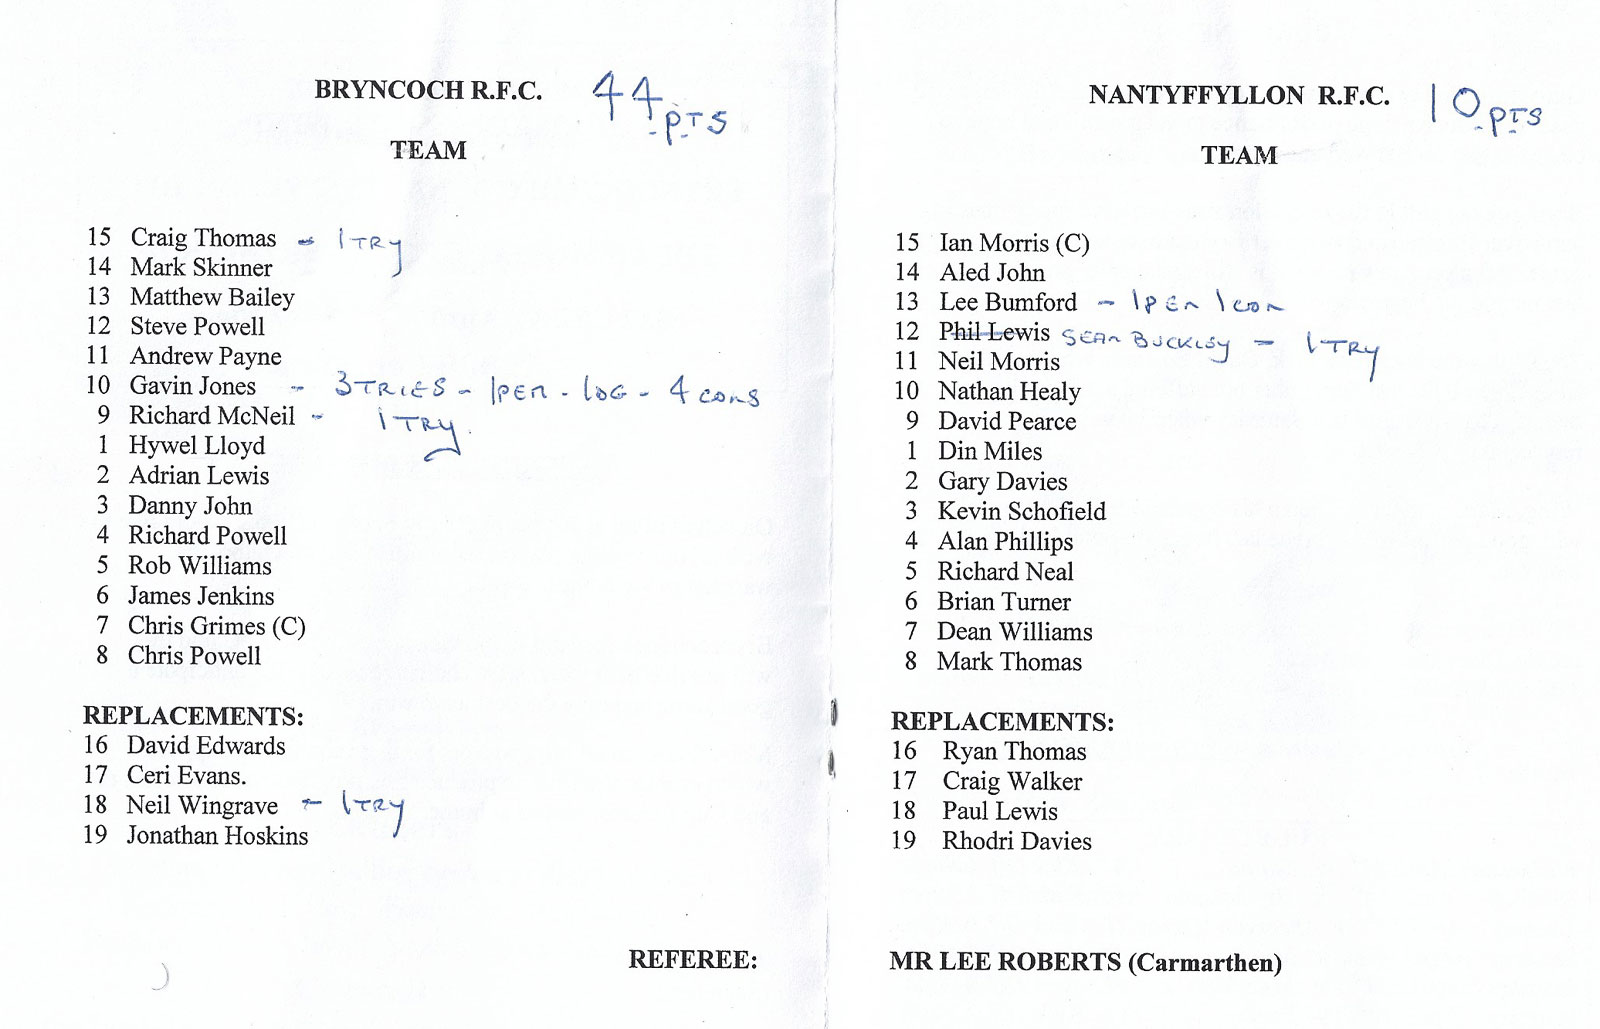 BRYNCOCH R.F.C. 44 PTS
TEAM
15 Craig Thomas - 1 TRY
14 Mark Skinner
13 Matthew Bailey
12 Steve Powell
11 Andrew Payne
10 Gavin Jones - 3 TRIES - 1 PEN - 1 DG - 4 CONS
9 Richard McNeil - 1 TRY.
1 Hywel Lloyd
2 Adrian Lewis
3 Danny John
4 Richard Powell
5 Rob Williams
6 James Jenkins
7 Chris Grimes (C)
8 Chris Powell
REPLACEMENTS:
16 David Edwards
17 Ceri Evans.
18 Neil Wingrave - 1 TRY
19 Jonathan Hoskins
REFEREE:
NANTYFFYLLON R.F.C. 10 PTS
TEAM
15 Ian Morris (C)
14 Aled John
13 Lee Bumford - 1 PEN 1 CON
12 Phil Lewis SEAN BUCKLEY - 1 TRY
11 Neil Morris
10 Nathan Healy
9 David Pearce
1 Din Miles
2 Gary Davies
3 Kevin Schofield
4 Alan Phillips
5 Richard Neal
6 Brian Turner
7 Dean Williams
8 Mark Thomas
REPLACEMENTS:
16 Ryan Thomas
17 Craig Walker
18 Paul Lewis
19 Rhodri Davies
MR LEE ROBERTS (Carmarthen)